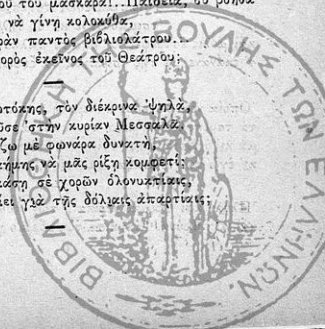 του μασκαρᾶ!.. Παιδεία, σὺ βοήθα
νὰ γίνῃ κολοκύθα,
παντὸς βιβλιολάτρου...
ἐκεῖνος τοῦ Θεάτρου;
τὸν διέκρινα ψηλά,
στὴν κυρίαν Μεσσαλᾶ,
μὲ φωνάρα δυνατή,
νὰ μᾶς ρίξῃ κομφετί;
σὲ χορῶν ὁλονυκτίαις,
γιὰ τῆς δόλιαις ἀπαρτίαις;
ΒΙΒΛΙΟΘΗΚΗ ΤΗΣ ΒΟΥΛΗΣ ΤΩΝ ΕΛΛΗΝΩΝ